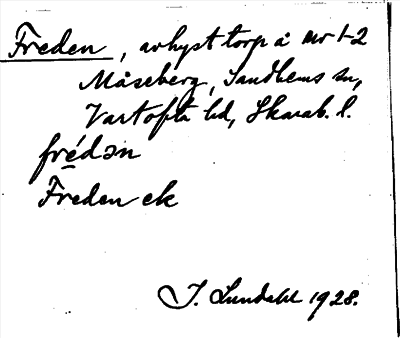 Freden, avhyst torp å nr 1-2
Måseberg, Sandhems sn,
Vartofta hd, Skarab. l.
frédən
Freden ek
I. Lundahl 1928.